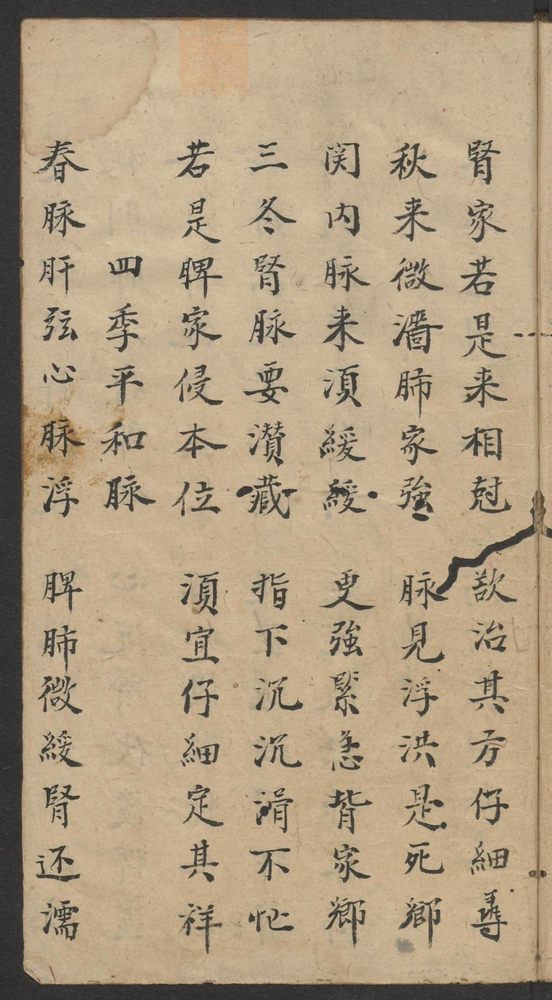 腎家若是来相尅 欲治其方仔細尋
秋来微濇肺家強 脉見浮洪是死鄉
関内脉来須緩緩 更強緊急背家鄉
三冬腎脉要潜藏 指下沉沉滑不忙
若是脾家侵本位 須宜仔細定其祥
四季平和脉
春脉肝弦心脉浮 脾肺微緩腎还濡